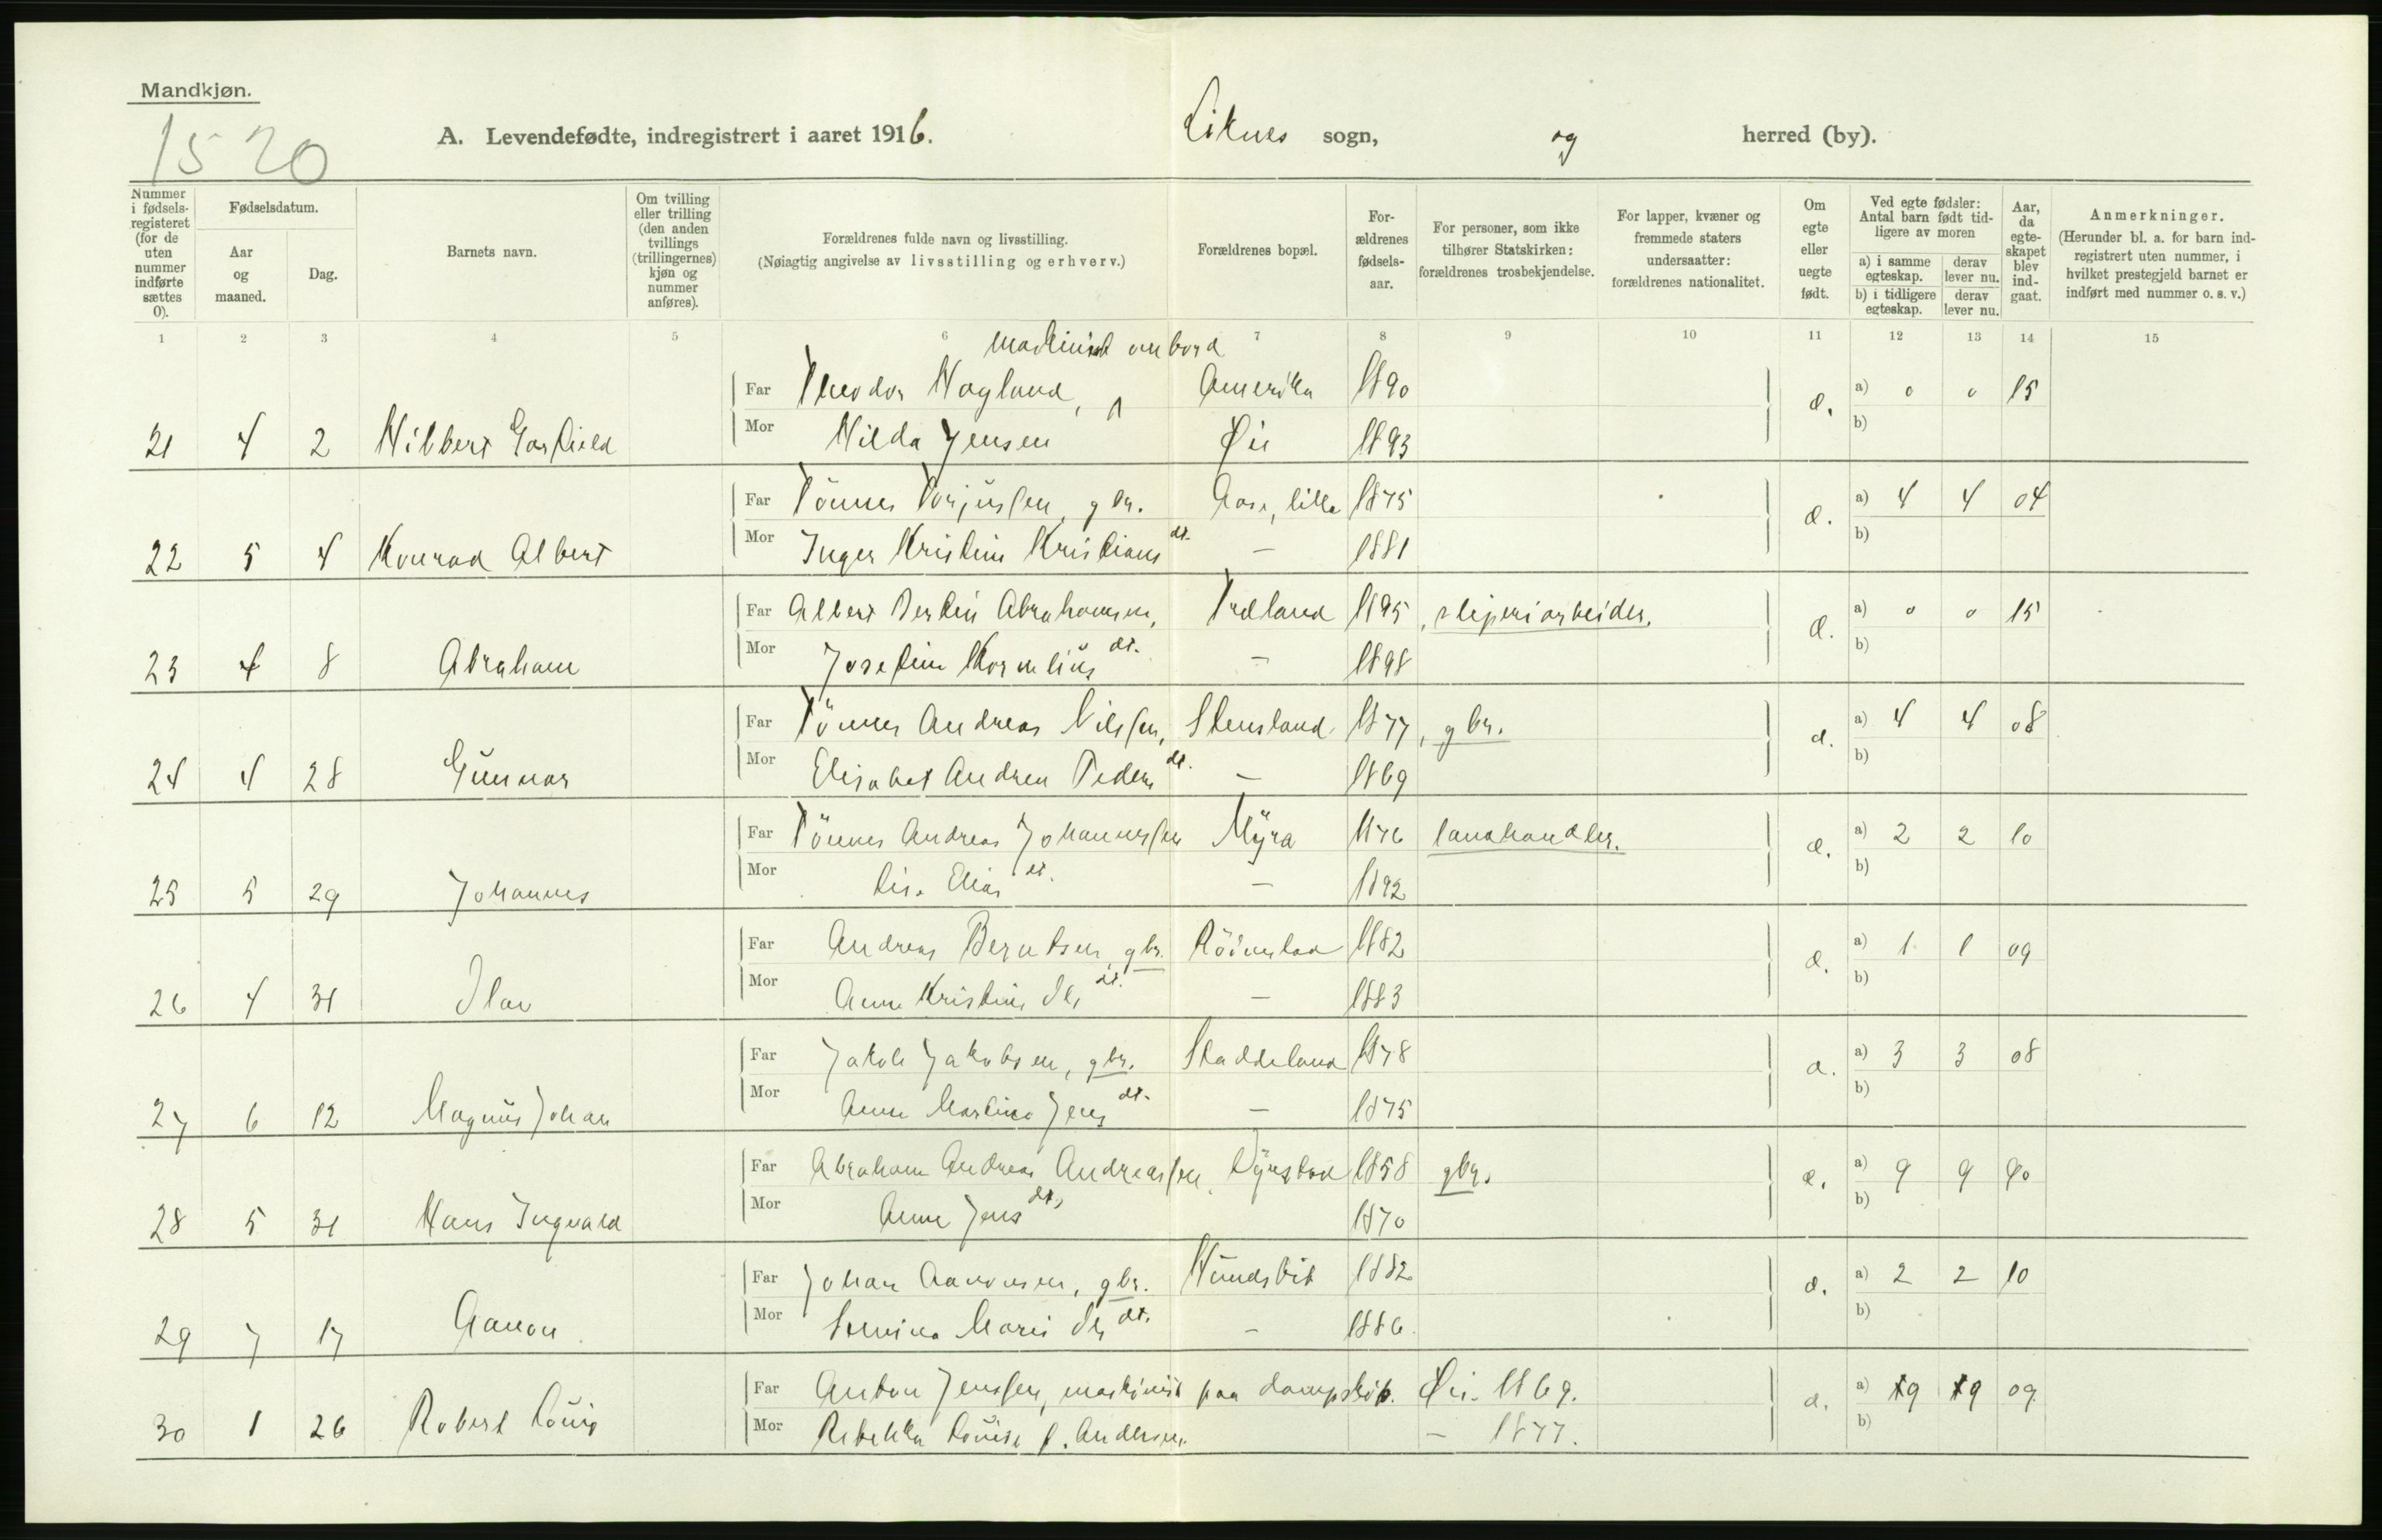 Mandkjøn.
1520
A. Levendefødte, indregistrert i aaret 1916. Liknes sogn, og herred (by).
Nummer i fødsels-registeret (for de uten nummer indførte sættes 0).
Fødselsdatum.
Aar og maaned.
Dag.
Barnets navn.
Om tvilling eller trilling (den anden tvillings (trillingernes) kjøn og nummer anføres).
Forældrenes fulde navn og livsstilling.
(Nøiagtig angivelse av livsstilling og erhverv.)
Forældrenes bopæl.
For-ældrenes fødsels-aar.
For personer, som ikke tilhører Statskirken: forældrenes trosbekjendelse.
For lapper, kvæner og fremmede staters undersaatter: forældrenes nationalitet.
Om egte eller uegte født.
Ved egte fødsler: Antal barn født tid-ligere av moren
a) i samme egteskap.
derav lever nu.
b) i tidligere egteskap.
derav lever nu.
Aar, da egte-skapet blev ind-gaat.
Anmerkninger.
(Herunder bl. a. for barn ind-registrert uten nummer, i hvilket prestegjeld barnet er indført med nummer o. s. v.)
1 2 3 4 5 6 7 8 9 10 11 12 13 14 15
maskinist ombord
Far Theodor Hagland, Amerika 1890 a) 0 0 15
21 4 2 Mor Hilda Jensen Øie 1893 b)
Far Tönnes gbr. Aase, lille 1875 a) 4 4 04
22 5 4 Konrad Albert Mor Inger Kristine Kristians dt. — 1881 b)
Far Albert Abrahamsen, Træland 1895, sliperiarbeider. a) 0 0 15
23 4 8 Abraham Mor Josefine Kornelius dt. — 1898 b)
Far Tönnes Andreas Nilsen, Stensland 1877, gbr. a) 4 4 08
24 4 28 Gunnar Mor Elisabet Andrea Peders dt. — 1869 b)
Far Tönnes Andreas Johannessen Myra 1876 landhandler. a) 2 2 10
25 5 29 Johannes Mor Elias dt. — 1892 b)
Far Andreas Berntsen, gbr. 1882 a) 1 1 09
26 4 31 Olav Mor Anne Kristine dt. — 1883 b)
Far Jakob Jakobsen, gbr. Staddeland 1878 a) 3 3 08
27 6 12 Magnus Johan Mor Anne Martine Jens dt. — 1875 b)
Far Abraham Andreas Andreassen, 1858 gbr. a) 9 9 90
28 5 31 Hans Ingvald Mor Anne Jens dt. 1870 b)
Far Johan Aanonsen, gbr. 1882 a) 2 2 10
29 7 17 Aanon Mor Marie dt. — 1886 b)
Far Anton Jenssen, maskinist paa dampskib. Øie. 1869. a) 9 9 09
30 1 26 Robert Louis Mor Rebekka Louise f. Andersen. — 1877. b)